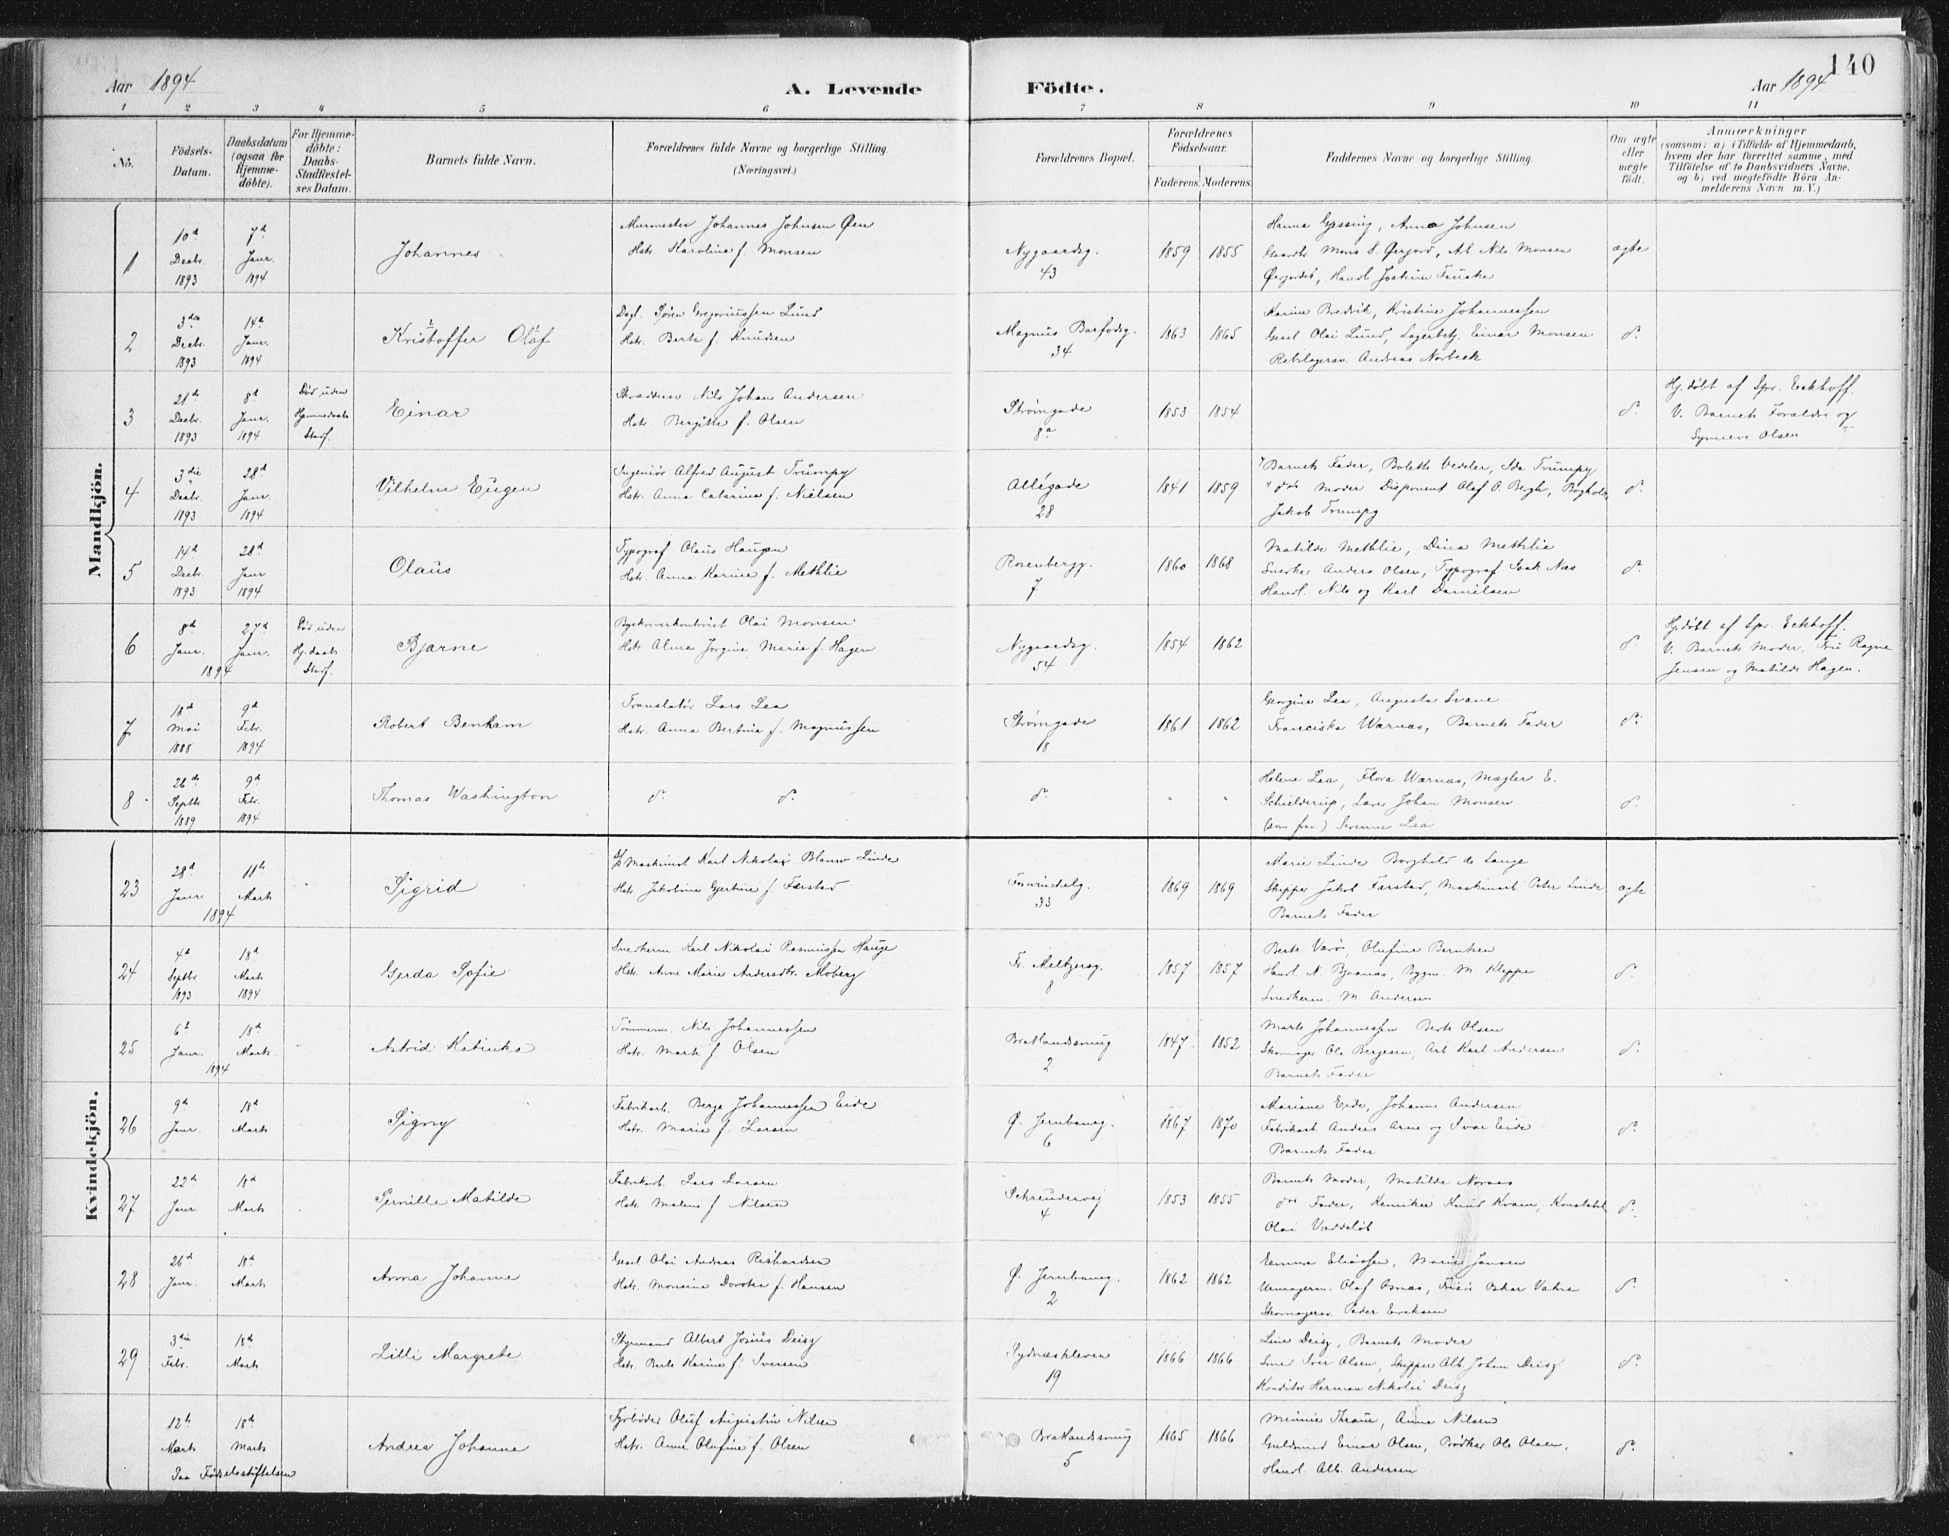 Aar 1894
A. Levende
Födte.
140
Aar 1894
1 2 3 4 5 6 7 8 9 10 11
No.
Födsels-Datum.
Daabsdatum (ogsaa for Hjemme-döbte).
For Hjemme-döbte: Daabs-Stadfæstel-ses Datum.
Barnets fulde Navn.
Forældrenes fulde Navne og borgerlige Stilling. (Næringsvei.)
Forældrenes Bopæl.
Forældrenes Födselsaar.
Faderens. Moderens.
Faddernes Navne og borgerlige Stilling.
Om ægte eller uægte födt.
Anmærkninger (saasom: a) i Tilfælde af Hjemmedaab, hvem der har forrettet samme, med Tilföielse af to Daabsvidners Navne, og b) ved uægtefödte Börn An-melderens Navn m. V.)
Mandkjön.
1
10d Decbr. 1893
7d Janr. 1894
Johannes
Murmester Johannes Johnsen Øen
Hstr. Karolina f. Monsen
Nygaardsg. 43
1859 1855
Hanna Gjessing, Anna Johnsen
Gaardbr. Mons S. Øvrjord, Arb. Nils Monsen
Øvrjordet, Handl. Joakim Fauske
ægte
2
3die Decbr. 1893
14d Janr. 1894
Kristoffer Olaf
Dagl. Søren Gregoriussen Lund
Hstr. Berte f. Knudsen
Magnus Barfodsg. 34
1863 1865
Karine Bredvik, Kristine Johannessen
Gesel Olai Lund, Lagerbetj. Einar Monsen
Rebslagersv. Andreas Norbeck
do
3
21d Decbr. 1893
8d Janr. 1894
Død uden Hjemmedaabs Stadf.
Einar
Skrædderm. Nils Johan Andersen
Hstr. Bergitte f. Olsen
Strømgade 8a
1853 1854
do
Hj. døbt af Spr. Eckhoff.
V. Barnets Forældre og
Synneve Olsen
4
3die Decbr. 1893
28d Janr. 1894
Vilhelm Eugen
Ingeniør Alfred August Trumpy
Hstr. Anna Catarina f. Nielsen
Allégade 28
1841 1859
Barnets Fader, Bolette Vedeler, Ida Trumpy
do Moder Disponent Olaf O. Bergh, Bogholder
Jakob Trumpy
do
5
14d Decbr. 1893
28d Janr 1894
Olaus
Typograf Olaus Haugen
Hstr. Anna Karine f. Methlie
Rosenbergg. 7
1860 1868
Matilde Methlie, Dina Methlie
Snedker Anders Olsen, Typograf Isak Næs
Handl. Nils og Karl Danielsen
do
6
8d Janr. 1894
27d Janr.
Død uden Hj.daabs Stadf.
Bjarne
Byskriverkontorist Olai Monsen
Hstr. Alma Jørgine Marie f. Hagen
Nygaardsg. 54
1854 1862
do
Hj. døbt af Spr. Eckhoff.
V. Barnets Moder, Fru Ragna
Jensen og Matilde Hagen.
7
18d Mai 1888
9d Febr. 1894
Robert Benham
Translatør Lars Lea
Hstr. Anna Bertina f. Magnussen
Strømgade 18
1861 1862
Georgine Lea, Augusta Svane
Franciska Warnas, Barnets Fader
do
8
26de Septbr. 1889
9d Febr. 1894
Thomas Washington
do do
do
" "
Helene Lea, Flora Wærnæs, Mægler E.
Schielderup, Lærer Johan Monsen
(som frav.) Severine Lea
do
Kvindekjön.
23
28d Janr. 1894
11te Marts
Sigrid
Maskinist Karl Nikolai Blauw Linde
Hstr. Jakobine Gjertine f. Færstad
Forvindelg. 33
1869 1869
Marie Linde Borghild de Lange
Skipper Jakob Færstad, Maskinarb. Peter Linde
Barnets Fader
ægte
24
4d Septbr. 1893
18d Marts 1894
Gerda Sofie
Snedkerm. Karl Nikolai Rasmussen Hauge
Hstr. Anne Marie Andersdtr. Moberg
Fr. Meltzersg. 8
1857 1857
Berte Varø, Olufine Berntsen
Handl. N. Bjoanæs, Bygm. M. Kleppe
Snedkerm. M. Andersen
do
25
6te Janr. 1894
18d Marts
Astrid Katinka
Tømmerm. Nils Johannessen
Hstr. Marte f. Olsen
Bratlandssmug 2
1847 1852
Marte Johannessen Berte Olsen
Skomager Ole Bergesen, Arb. Karl Andersen
Barnets Fader
do
26
9d Janr.
18d Marts
Signy
Fabrikarb. Berge Johannessen Eide
Hstr. Marie f. Larsen
Ø. Jernbaneg. 6
1867 1870
Mariane Eide, Johanne Andersen
Fabrikarb. Anders Arne og Ivar Eide
Barnets Fader
do
27
22d Janr.
18d Marts
Pernille Matilde
Fabrikarb. Lars Larsen
Hstr. Malene f. Nilsen
Schreudervej 4
1853 1855
Barnets Moder, Matilde Noraas
do Fader, Kemiker Knud Kvam, Konstabel
Olai Væddeløb
do
28
26d Janr.
18d Marts
Anna Johanne
Gesel Olai Andreas Richardsen
Hstr. Monsine Dorotea f. Hansen
Ø. Jernbaneg. 2
1862 1862
Emma Eliassen, Marie Jansen
Urmagerm. Olaf Osnæs, Frisør Oskar Vatne
Skomagersv. Peder Eriksen
do
29
3die Febr.
18d Marts
Lilli Margrete
Styrmand Albert Josius Deisz
Hstr. Berte Karine f. Iversen
Sydnæskleven 19
1866 1866
Line Deisz, Barnets Moder
Smed Iver Olsen, Skipper Alb. Johan Deisz
Konditor Herman Nikolai Deisz
do
12te Marts
18d Marts
Paa Fødselsstiftelsen
Andrea Johanne
Fyrbøder Oluf Augustin Nilsen
Hstr. Anne Olufine f. Olsen
Bratlandssmug 5
1865 1866
Minnie Thraue, Anna Nilsen
Guldsmed Einar Olsen, Bødker Ole Olsen,
Handl. Alb. Andersen
do